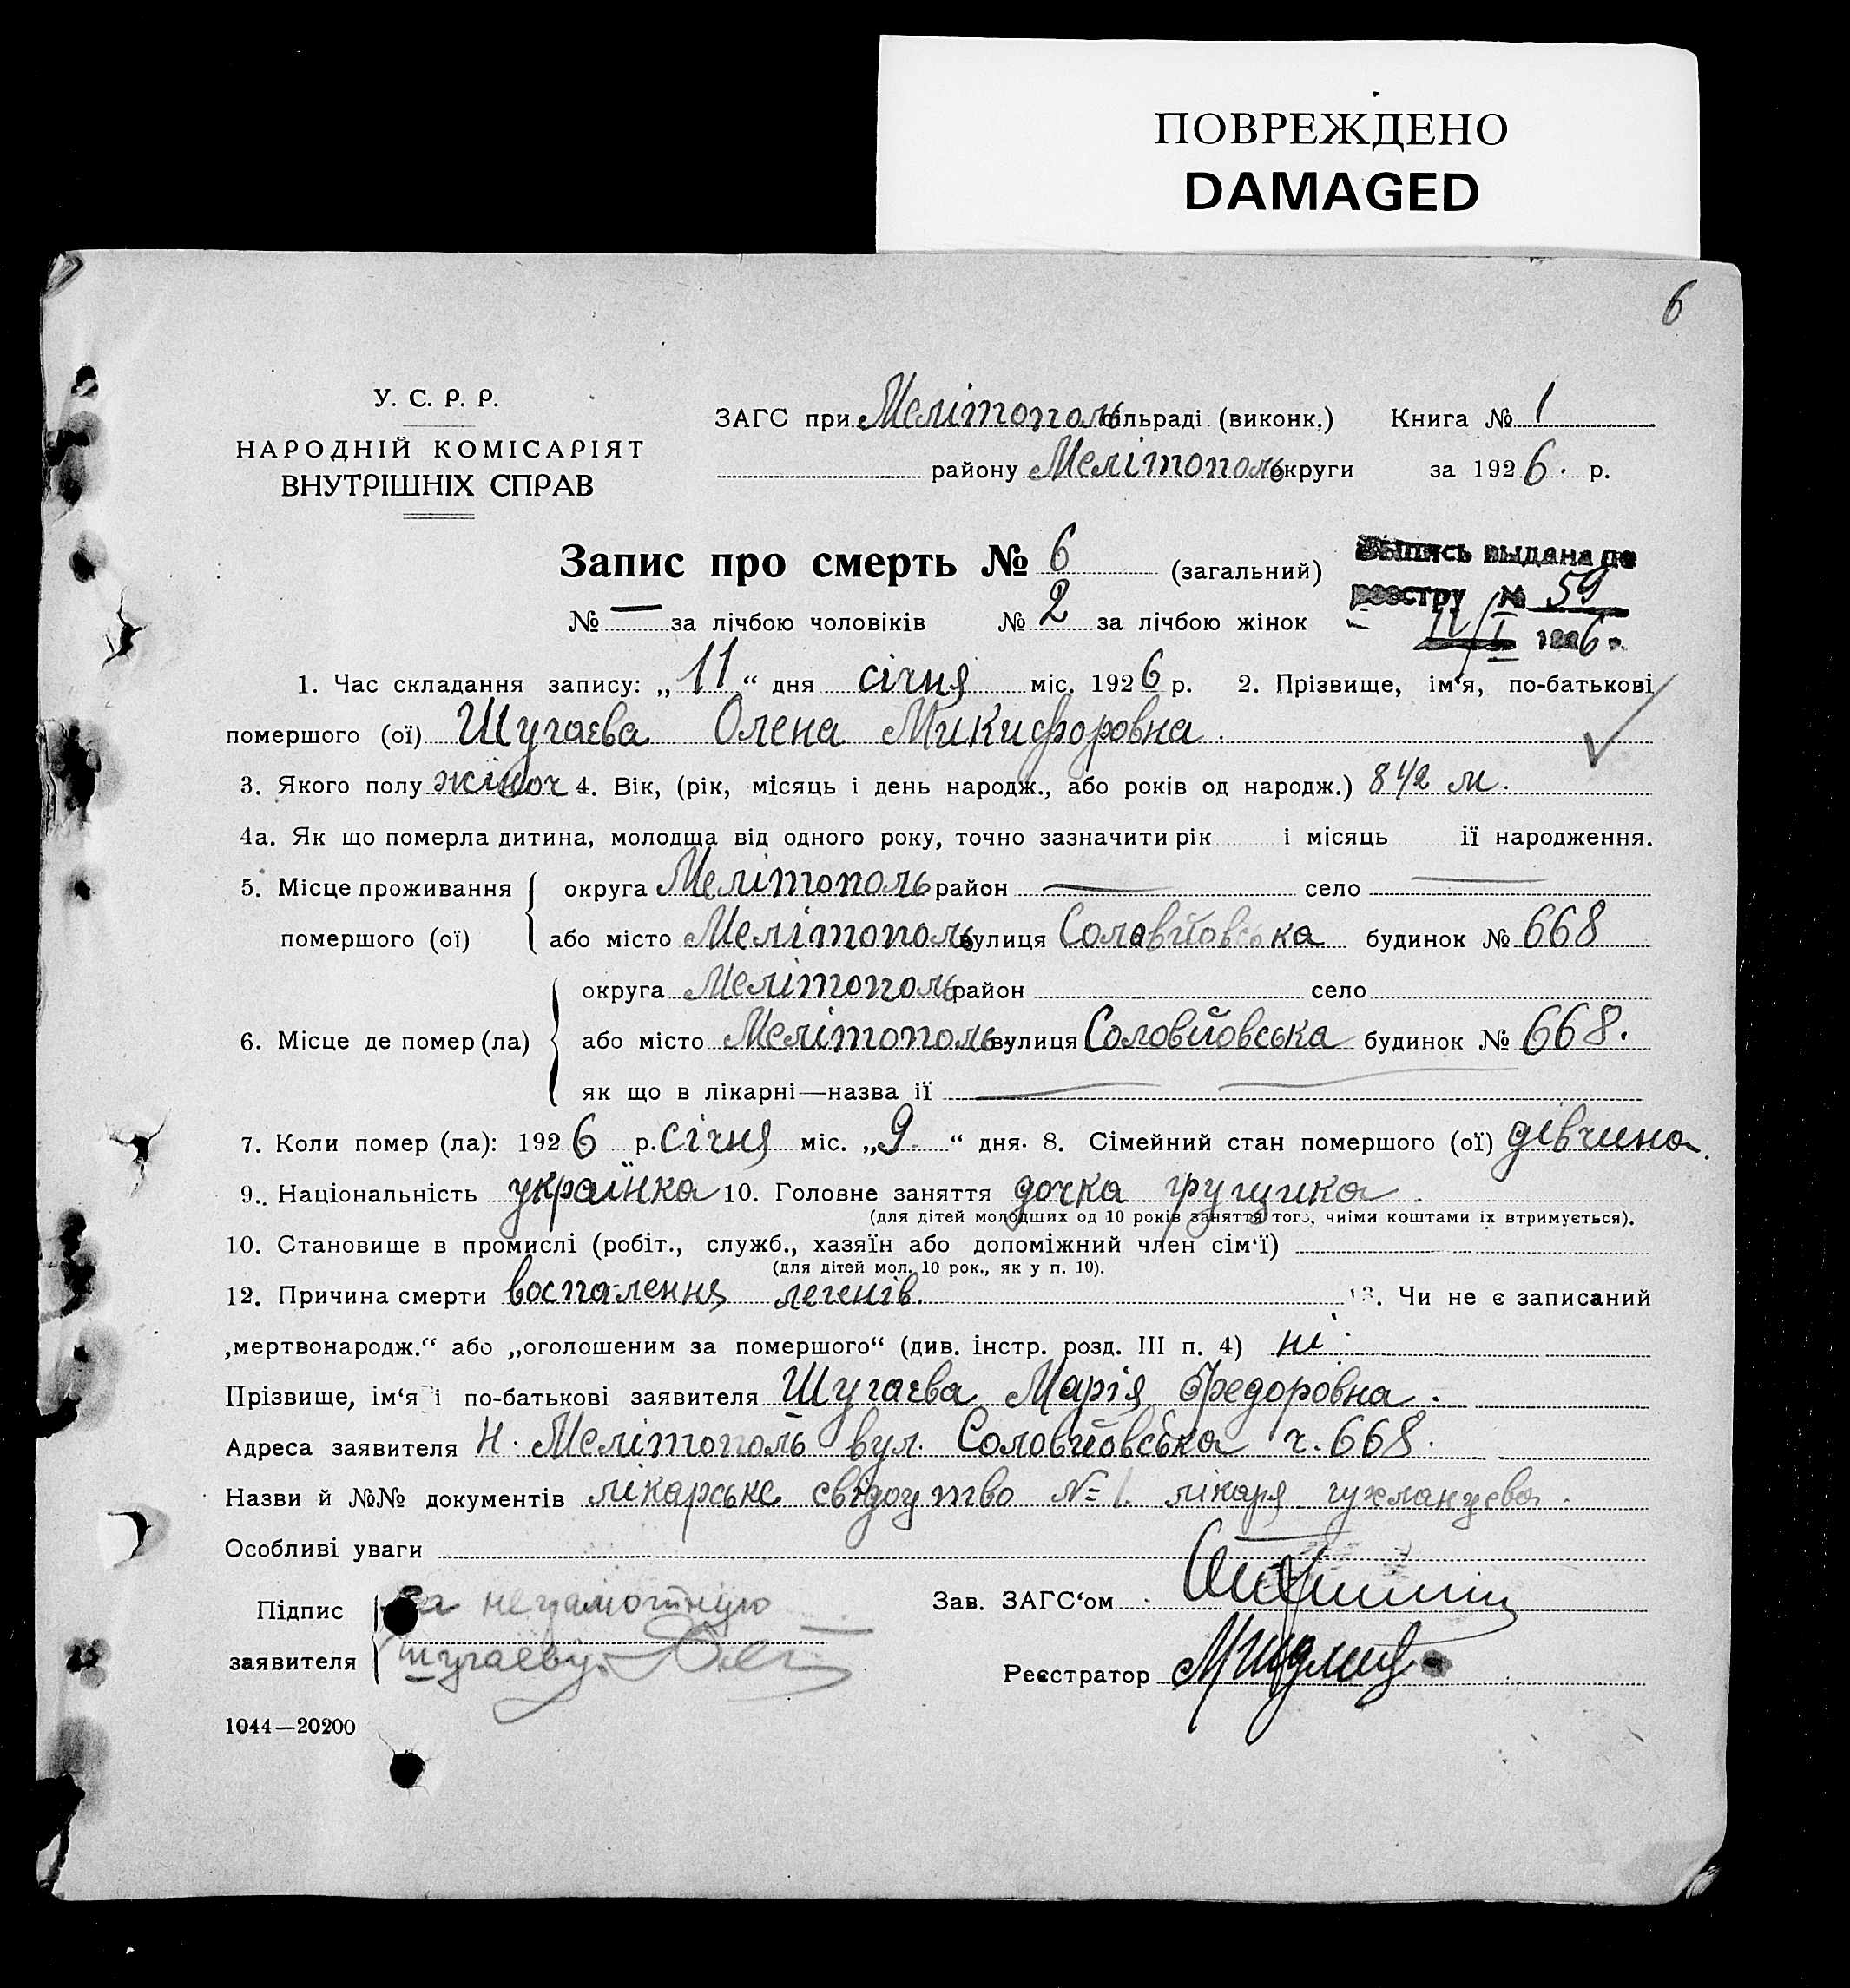 ПОВРЕЖДЕНО
DAMAGED
6
У. С. Р. Р.
НАРОДНІЙ КОМІСАРІЯТ
ВНУТРІШНІХ СПРАВ
ЗАГС при Мелітополь сільраді (виконк.) Книга № 1
району Мелітополь округи за 1926. р.
Запис про смерть № 6 (загальний)
Выпись выдана по
реестру № 59
11/I 1926 г.
№ — за лічбою чоловіків № 2 за лічбою жінок
1. Час складання запису: „11“ дня січня міс. 1926 р. 2. Прізвище, ім‘я, по-батькові
помершого (ої) Шугаєва Олена Микифоровна.
3. Якого полу жіноч 4. Вік, (рік, місяць і день народж., або років од народж.) 8 1/2 м.
4а. Як що померла дитина, молодща від одного року, точно зазначити рік і місяць ії народження.
5. Місце проживання округа Мелітополь район — село —
помершого (ої) або місто Мелітополь вулиця Соловйовська будинок № 668
округа Мелітополь район село
6. Місце де помер (ла) або місто Мелітополь вулиця Соловйовська будинок № 668.
як що в лікарні—назва ії — —
7. Коли помер (ла): 1926 р. січня міс. „9“ дня. 8. Сімейний стан помершого (ої) дівчина.
9. Національність українка 10. Головне заняття дочка грущика.
(для дітей молодших од 10 років заняття того, чиїми коштами їх втримується).
10. Становище в промислі (робіт., служб., хазяїн або допоміжний член сім‘ї)
(для дітей мол. 10 рок., як у п. 10).
12. Причина смерти воспалення легенів. 13. Чи не є записаний
„мертвонародж.“ або „оголошеним за помершого“ (див. інстр. розд. III п. 4) ні.
Прізвище, ім‘я і по-батькові заявителя Шугаєва Марія Федоровна.
Адреса заявителя Н. Мелітополь вул. Соловйовська ч. 668.
Назви й №№ документів лікарське свідоцтво №1 лікаря
Особливі уваги
Підпис за неграмотную
заявителя Шугаеву
Зав. ЗАГС‘ом
Реєстратор
1044—20200